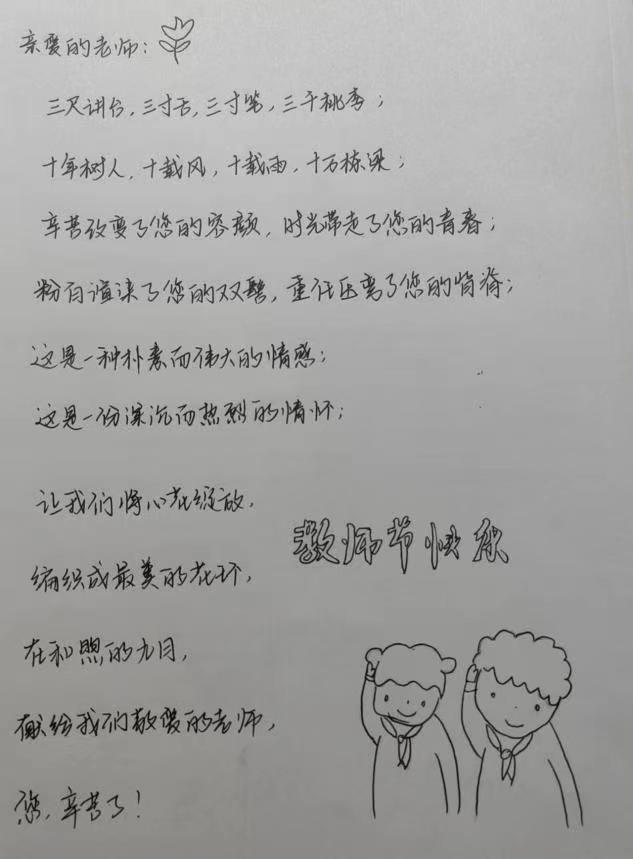 亲爱的老师：
三尺讲台，三寸舌，三寸笔，三千桃李；
十年树人，十载风，十载雨，十万栋梁；
辛苦改变了您的容颜，时光带走了您的青春；
粉白渲染了您的双鬓，重任压弯了您的背脊；
这是一种朴素而伟大的情感；
这是一份深沉而热烈的情怀；
让我们将心花绽放，
编织成最美的花环，
在和煦的九月，
献给我们敬爱的老师，
您，辛苦了！
教师节快乐